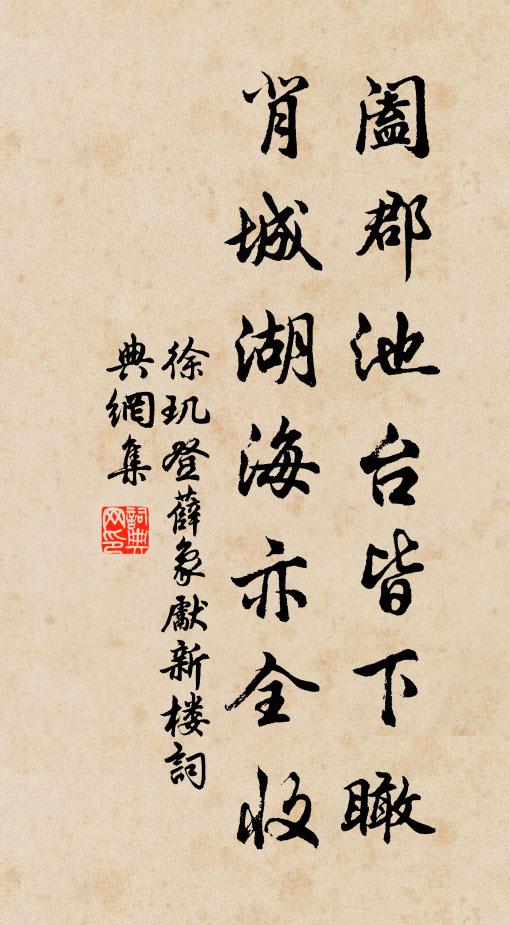 阖郡池台皆下瞰
背城湖海亦全收
徐玑登薛象獻新楼詞
典網集
詞典网印